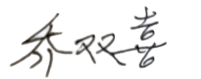 乔双喜